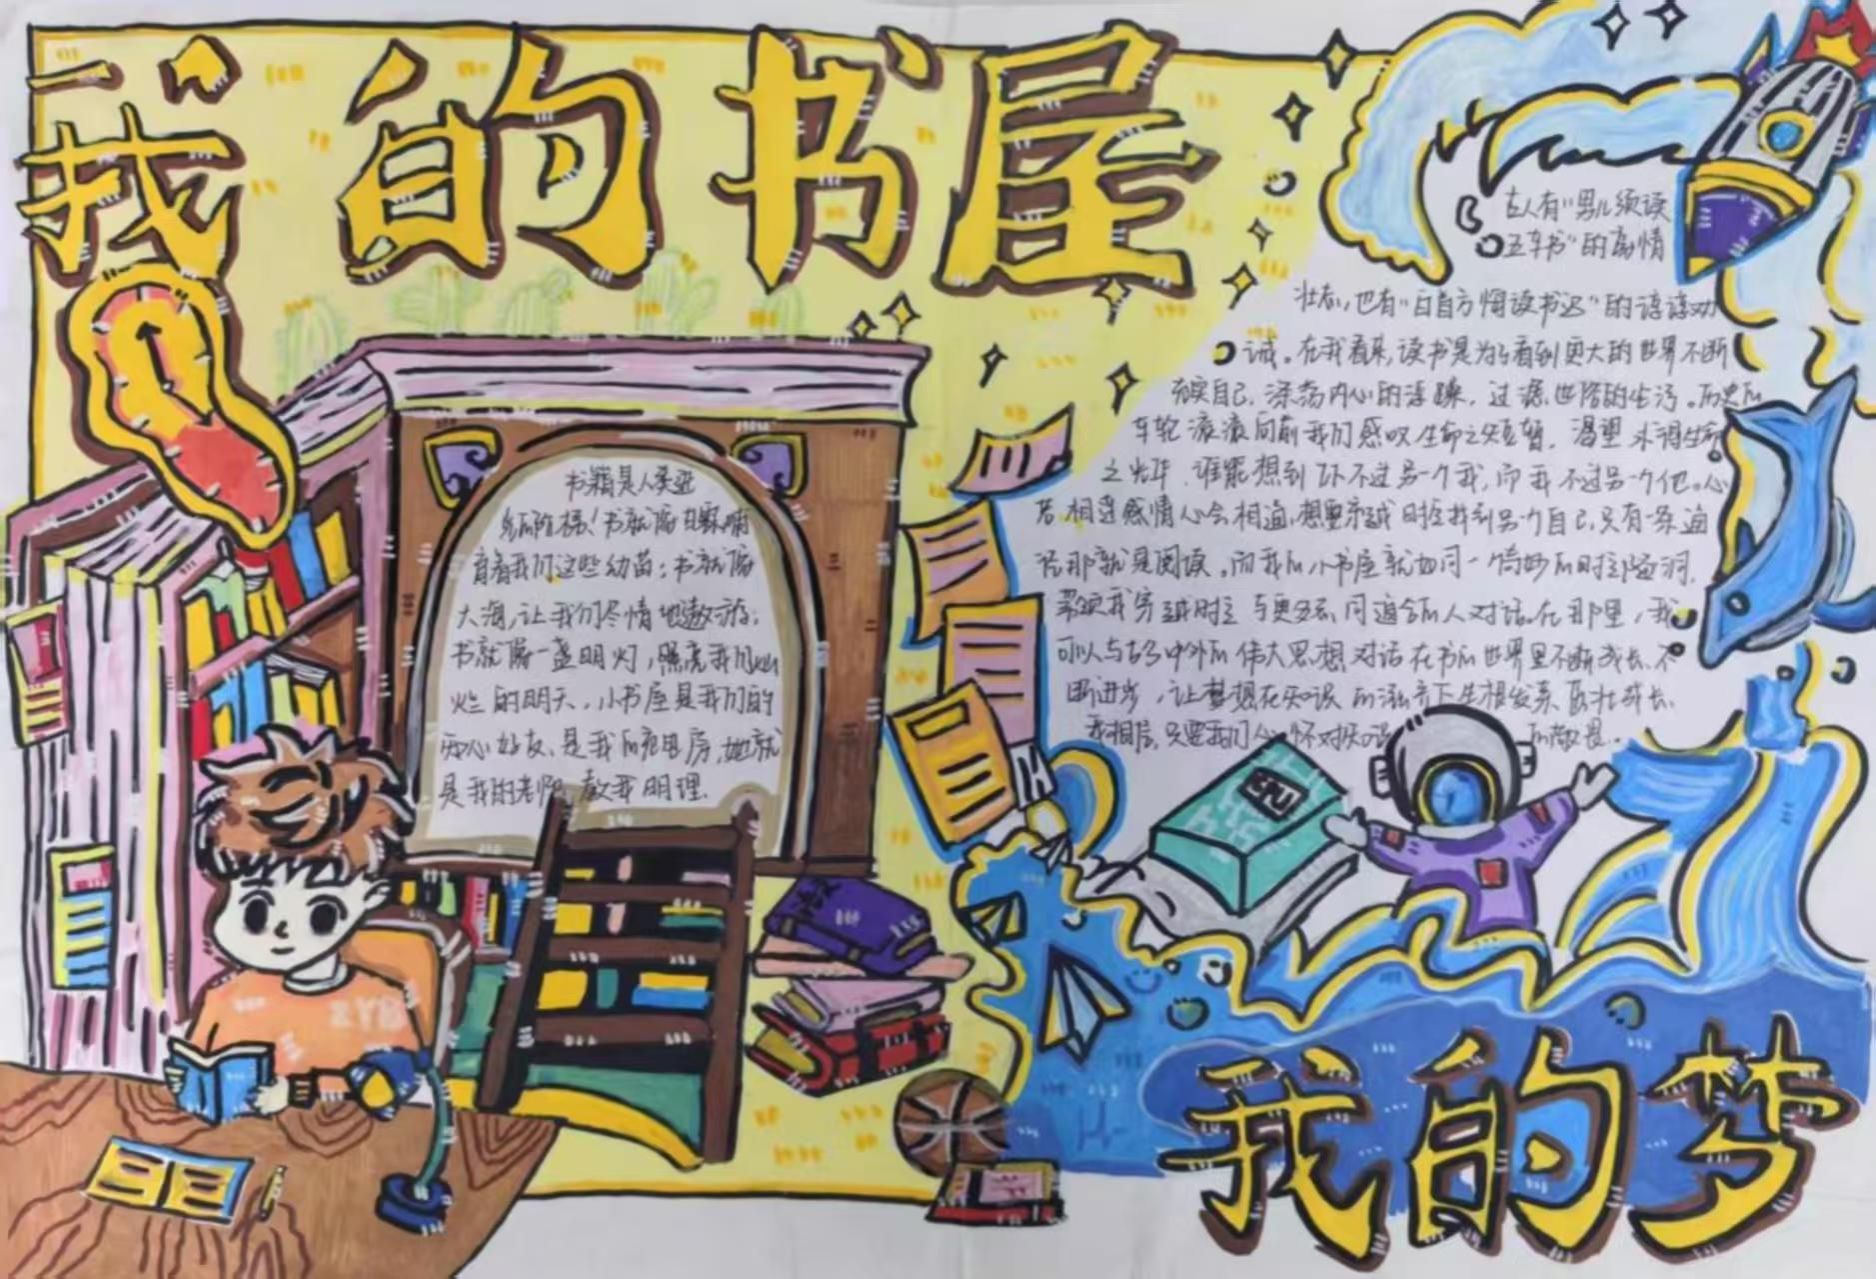 我的书屋
书籍是人类进
步的阶梯！书就像
育着我们这些幼苗；书就像
大海，让我们尽情地遨游；
书就像一盏明灯，照亮我们灿
烂的明天，小书屋是我们的
好友、是我的，她就
是我的老师，教我明理.
古人有“男儿须读
五车书”的豪情
壮志，也有“白首方悔读书迟”的谆谆劝
诫。在我看来，读书是为了看到更大的世界不断
充实自己，涤荡内心的浮躁，过滤世俗的生活。历史的
车轮滚滚向前我们感叹生命之短暂，渴望永恒生命
之光华，谁能想到你不过另一个我，而我不过另一个他。心
若相连感情心会相通，想要穿越时空找到另一个自己，只有一条通
话那就是阅读。而我的小书屋就如同一个奇妙的时空隧洞，
我穿越时空与更多志同道合的人对话。在那里，我
可以与古今中外的伟大思想对话在书的世界里不断成长、不
断进步，让梦想在知识的滋养下生根发芽、茁壮成长、
我相信，只要我们心怀对知识的敬畏。
我的梦